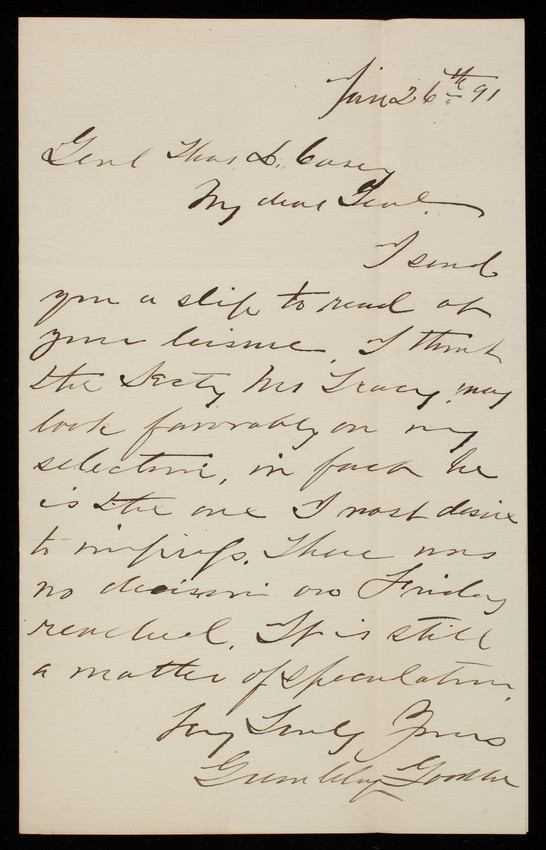 Jan 26th 91
Genl Thos L. Casey
My dear Genl.
I send
you a slip to read at
your leisure. I think
the Secty Mr Tracy may
look favorably on my
selection, in fact he
is the one I most desire
to impress. There was
no decision on Friday
reached. It is still
a matter of speculation.
Very Truly Yours